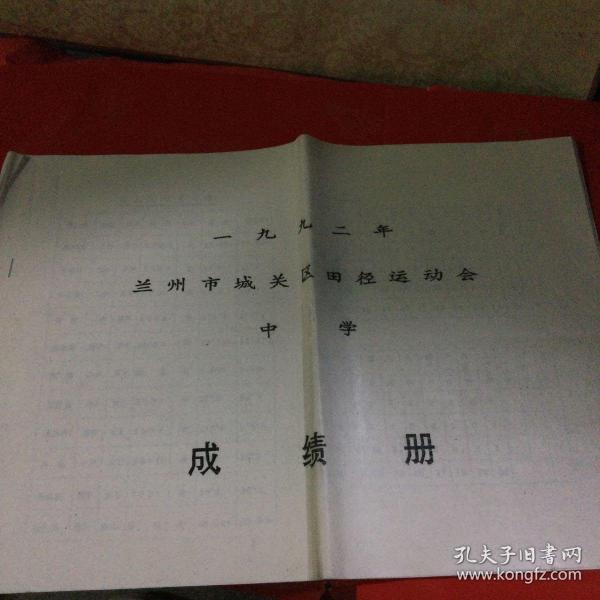 一九九二年
兰州市城关区田径运动会
中学
成绩册
孔夫子旧書网
www.kongfz.com